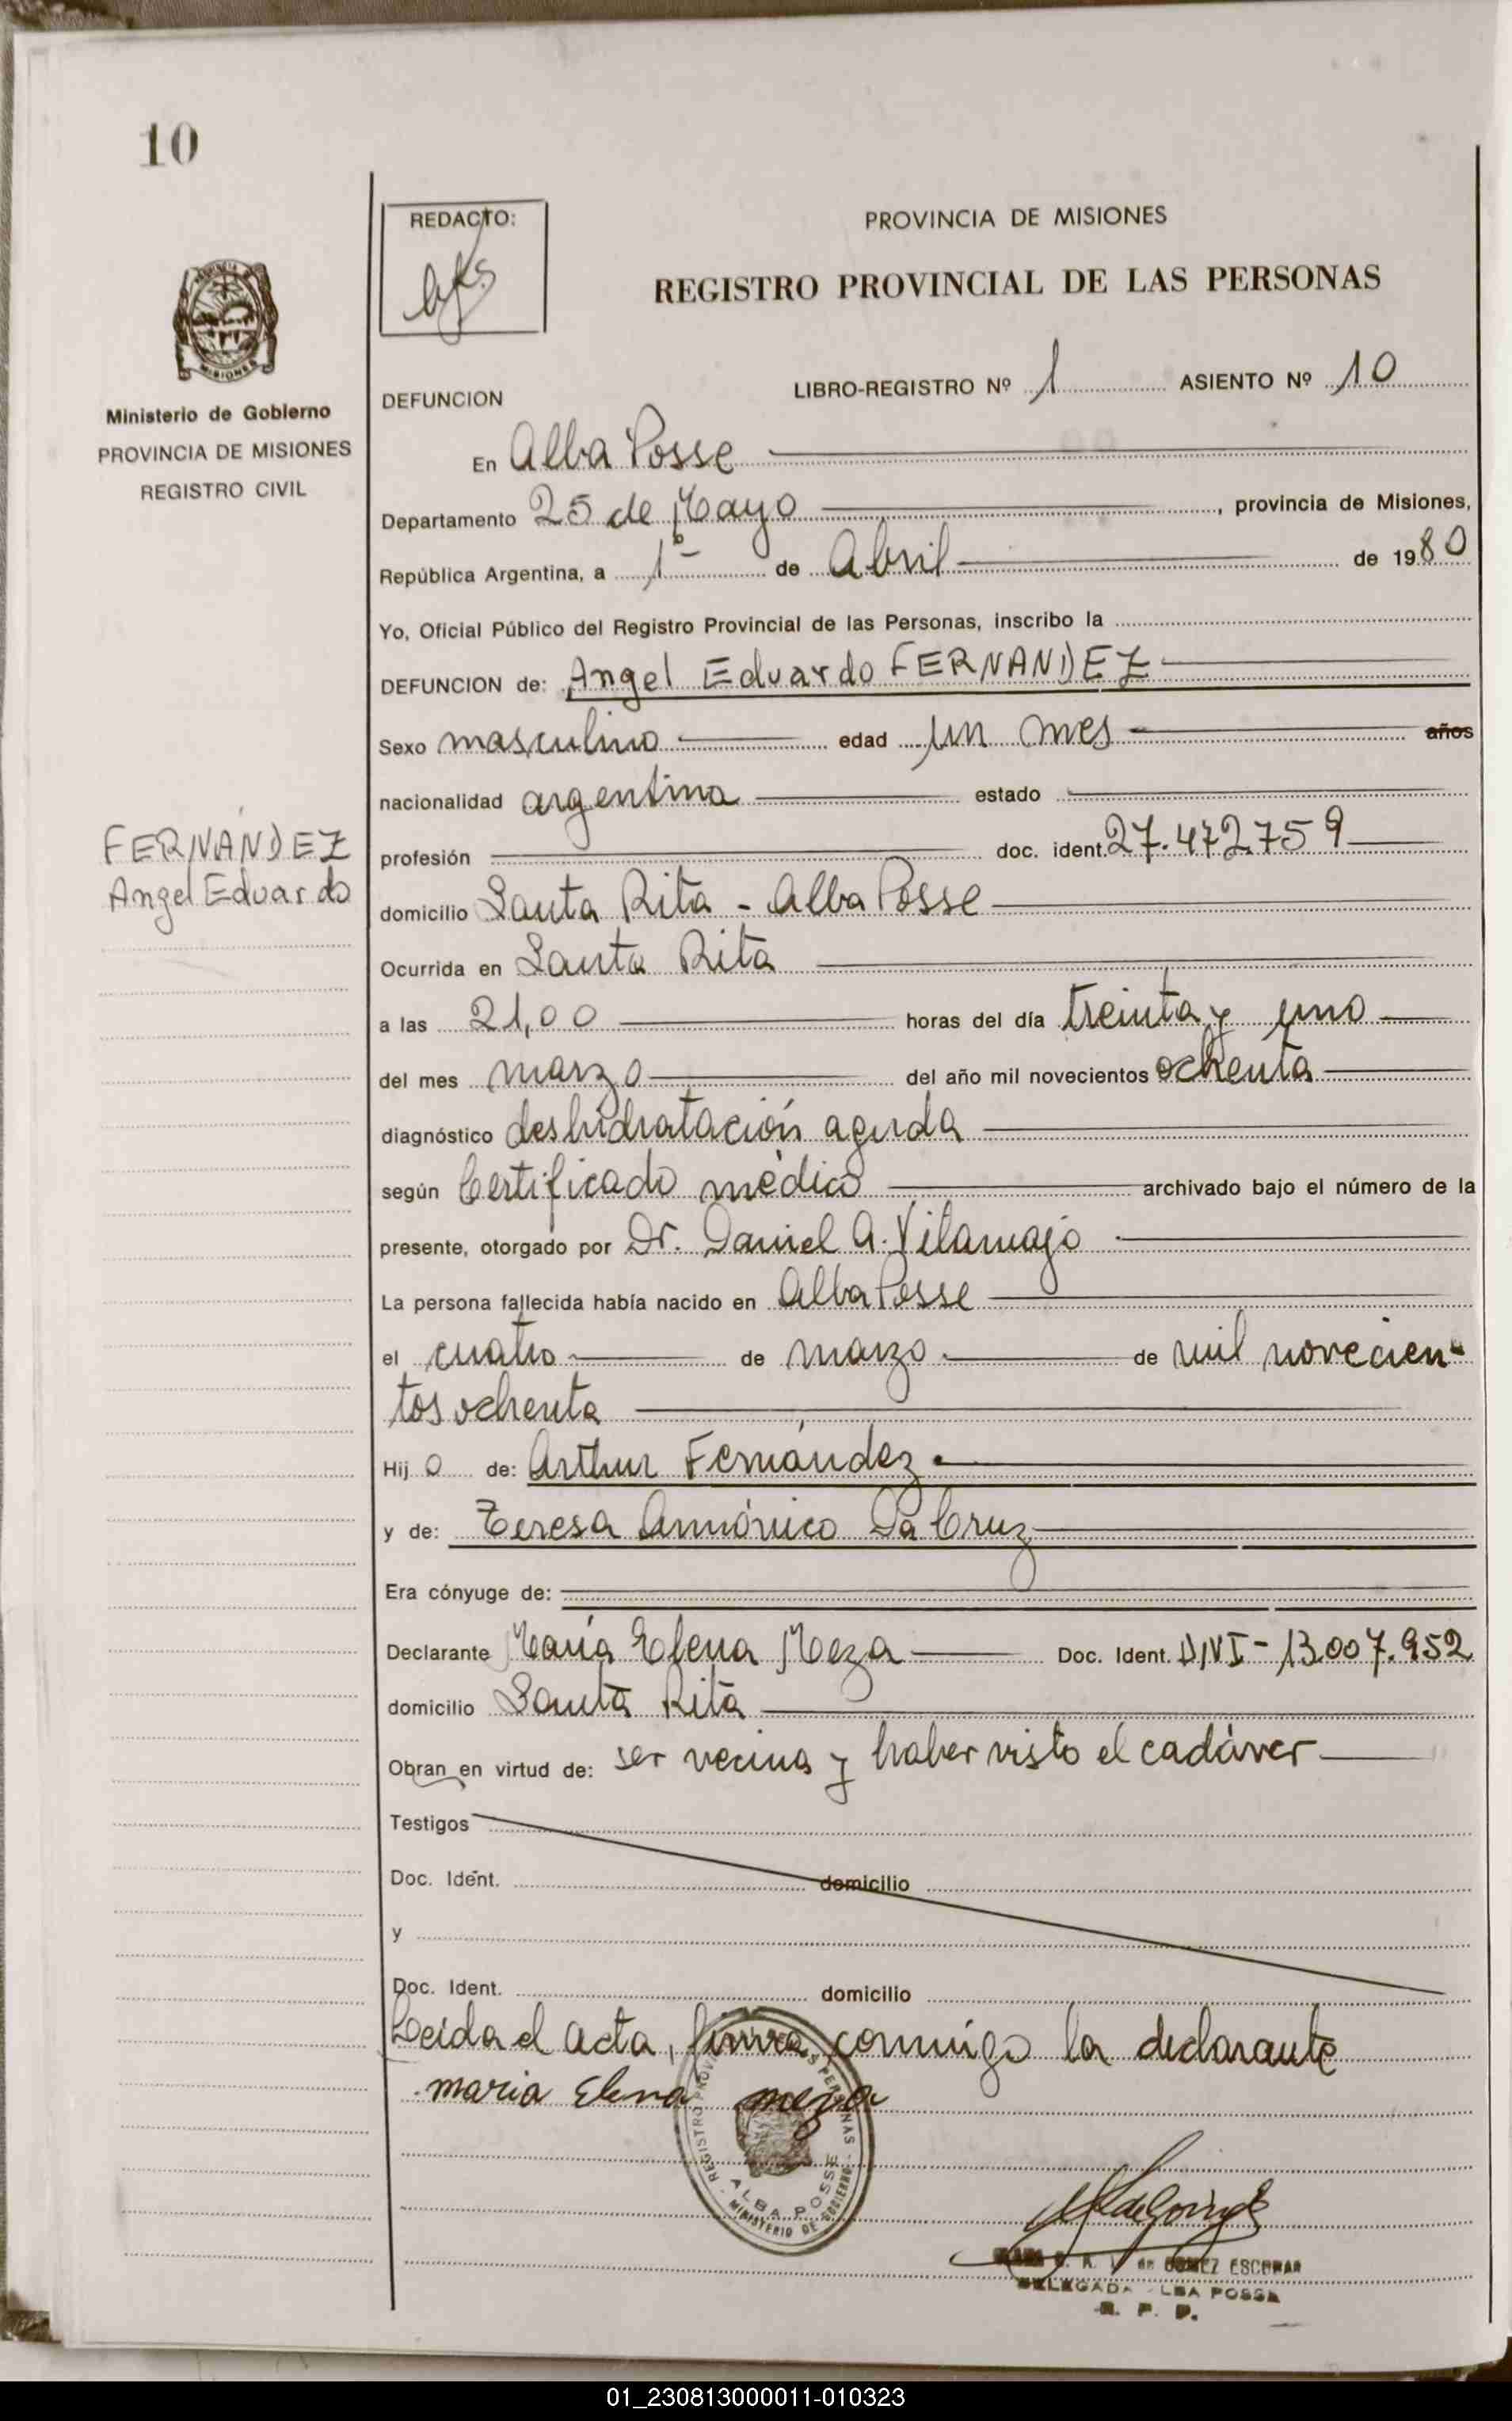 10
REDACTO:
PROVINCIA DE MISIONES
REGISTRO PROVINCIAL DE LAS PERSONAS
Ministerio de Gobierno
PROVINCIA DE MISIONES
REGISTRO CIVIL
DEFUNCION LIBRO-REGISTRO Nº 1 ASIENTO Nº 10
En Alba Posse
Departamento 25 de Mayo, provincia de Misiones,
República Argentina, a 1º de Abril de 1980
Yo, Oficial Público del Registro Provincial de las Personas, inscribo la
DEFUNCION de: Angel Eduardo FERNANDEZ
Sexo masculino edad un mes años
nacionalidad argentina estado
FERNANDEZ
Angel Eduardo
profesión doc. ident. 27.472.759
domicilio Santa Rita - Alba Posse
Ocurrida en Santa Rita
a las 21,00 horas del día treinta y uno
del mes marzo del año mil novecientos ochenta
diagnóstico deshidratación aguda
según Certificado médico archivado bajo el número de la
presente, otorgado por Dr. Daniel A. Vilamajó
La persona fallecida había nacido en Alba Posse
el cuatro de marzo de mil novecien-
tos ochenta
Hijo de: Arthur Fernández
y de: Teresa Da Cruz
Era cónyuge de:
Declarante María Elena Meza Doc. Ident. DNI- 13.007.952
domicilio Santa Rita
Obran en virtud de: ser vecina y haber visto el cadáver
Testigos
Doc. Ident. domicilio
y
Doc. Ident. domicilio
Leida el acta, firma conmigo la declarante
maria Elena meza
REGISTRO PROVINCIAL DE LAS PERSONAS
ALBA POSSE
MINISTERIO DE GOBIERNO
de GOMEZ ESCOBAR
DELEGADA ALBA POSSE
R. P. P.
01_230813000011-010323